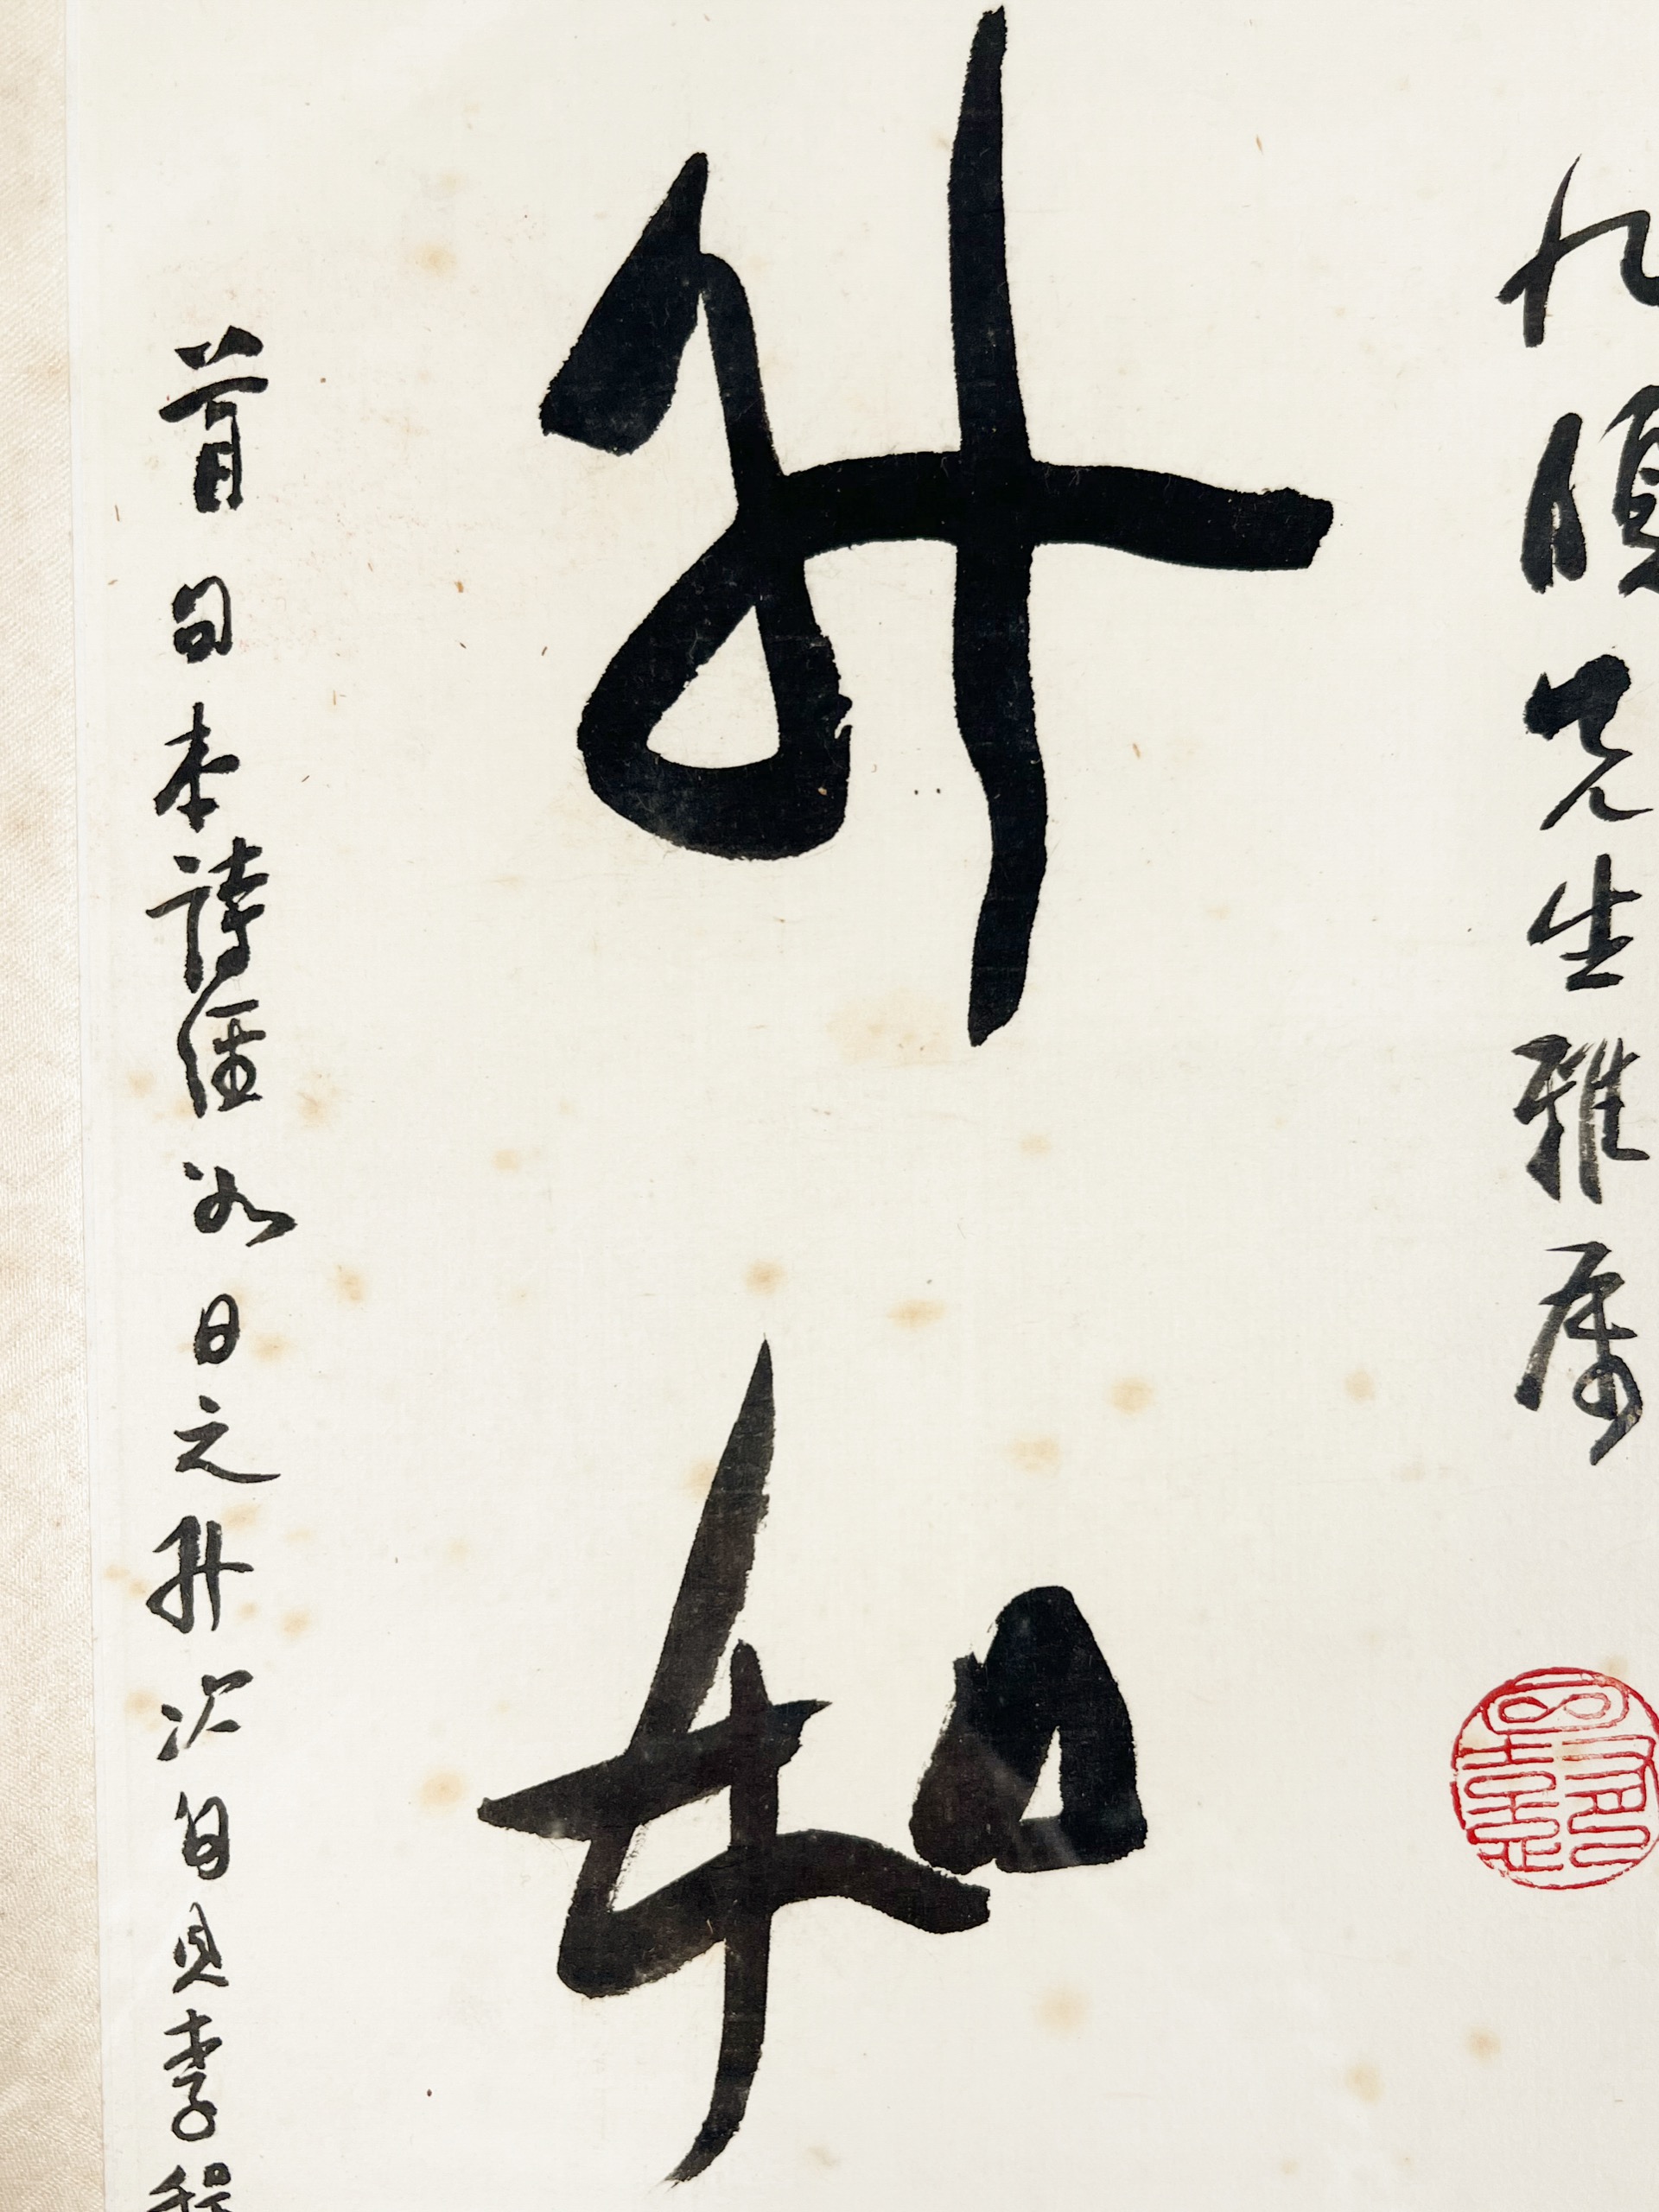 九頤先生雅屬
升和
首句本詩經如日之升次句見李程